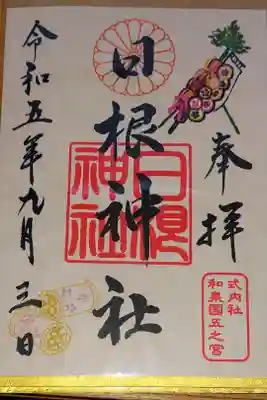 奉拝
式内社
和泉國五之宮
日根神社
日根
神社
令和五年九月三日